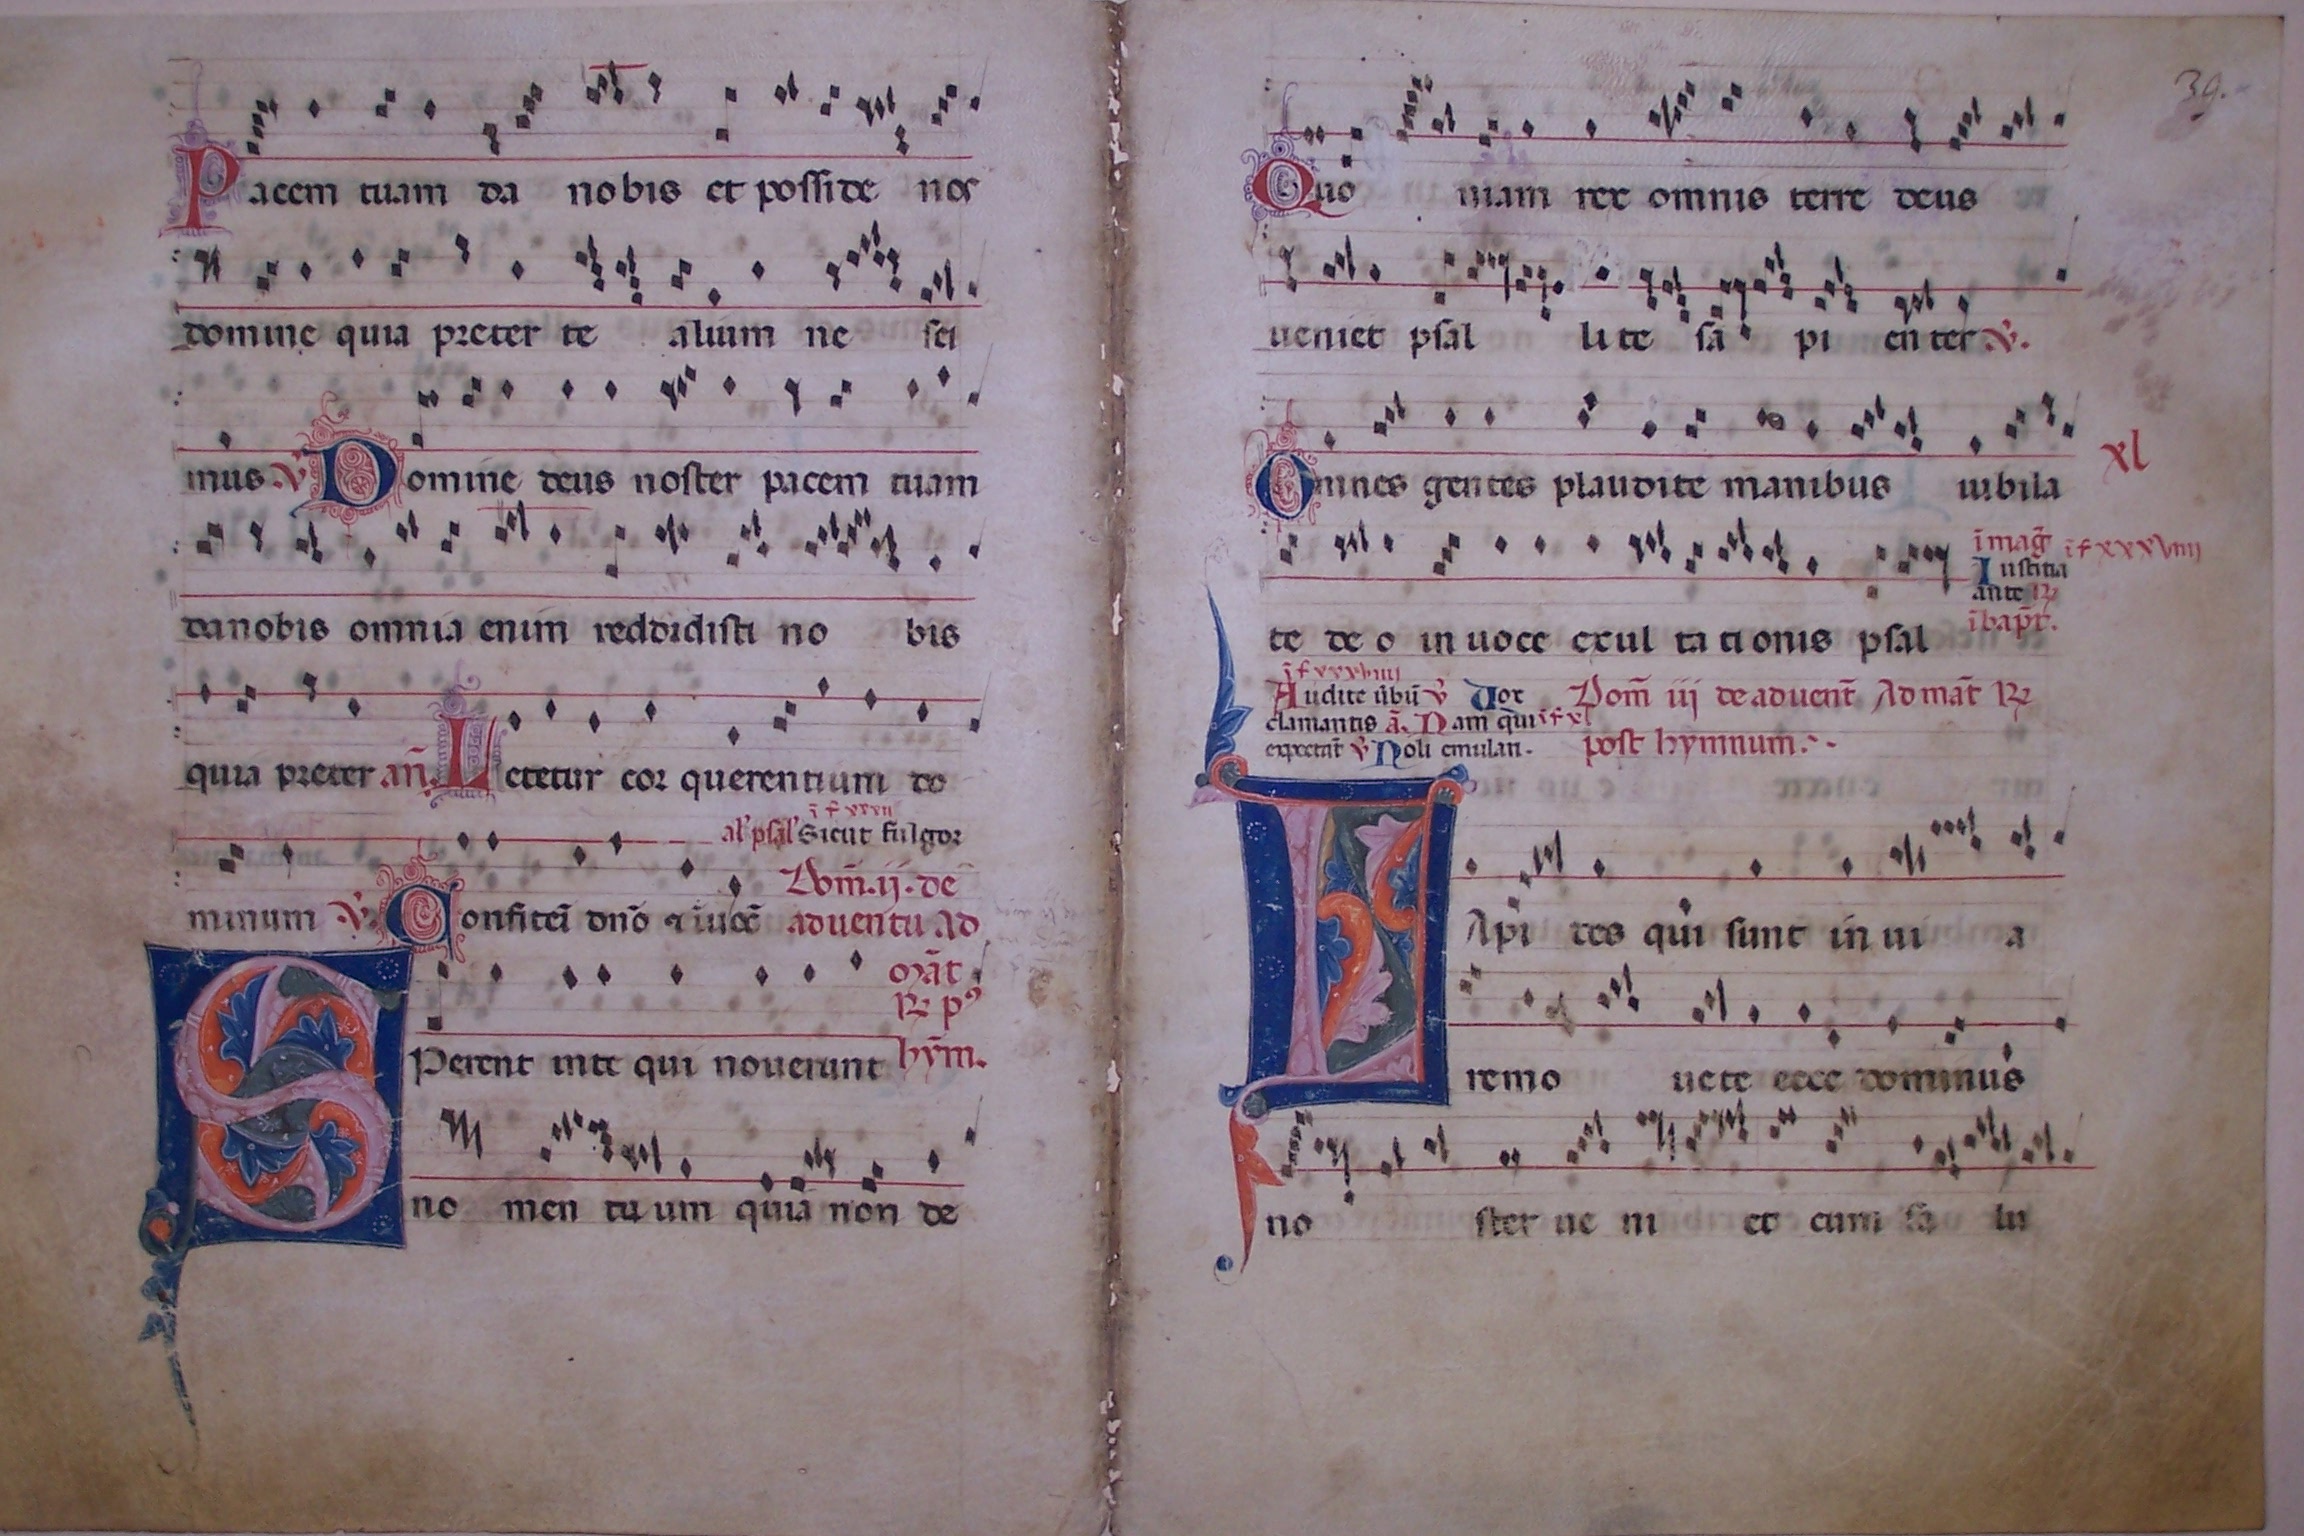 Pacem tuam da nobis et posside nos
domine quia preter te alium ne sci
mus V̄ Domine deus noster pacem tuam
da nobis omnia enim reddidisti no bis
quia preter añ. Letetur cor querentium do
ī f xxxii
al' psal' Sicut fulgor
Dom̄. ij. de
minum V̄ Confitem̄ dn̄o ⁊ īuoc̄ aduentu ad
mat̄
R p⁹
SPerent in te qui nouerunt hym̄.
no men tu um quia non de
39.
Quo niam rex omnis terre deus
ueniet psal li te sa pi en ter V̄.
xl
Omnes gentes plaudite manibus iubila
ī mag̃ ī f xxxviiij
Iustitia
ante R
ī bap̃t.
te de o in uoce exul ta ti onis psal
ī f xxxviiij
Audite ūbū V̄ Vox Dom̄ iij de aduent̄ Ad mat̄ R
clamantis ā. Nam qui ī f xl
expectāt V̄ Noli emulari. post hymnum.
LApi des qui sunt in ui a
remo uete ecce dominus
no ster ue ni et cum sa lu